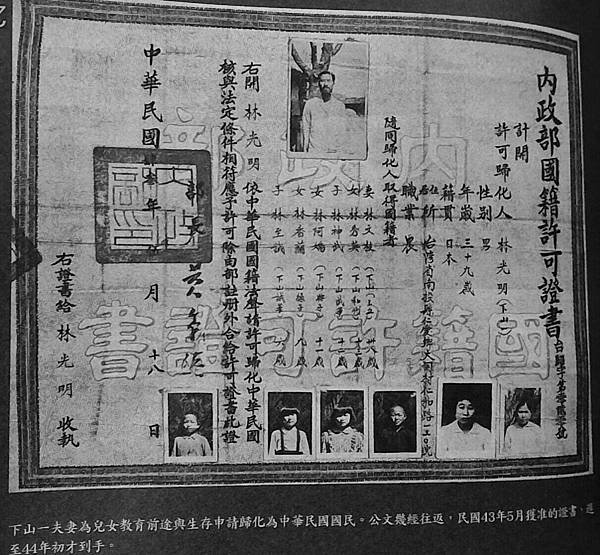 內政部國籍許可證書
計開
許可歸化人 林光明
性別 男
年歲 三十九歲
籍貫 日本
住所 台灣省南投縣仁愛鄉大同村仁和路
職業 農
隨同歸化人取得國籍者
妻 林文枝
女 林秀英
子 林神武
女 林阿鳩
女 林香蘭
子 林至誠
右開 林光明 依中華民國國籍法聲請許可歸化中華民國
核與法定條件相符應予許可除由部註册外合給許可證書此證
部長
中華民國 年 月 十八 日
右證書給 林光明 收執
內政部
國籍許可證書
下山一夫妻為兒女教育前途與生存申請歸化為中華民國國民。公文幾經往返，民國43年5月獲准的證書，遲
至44年初才到手。